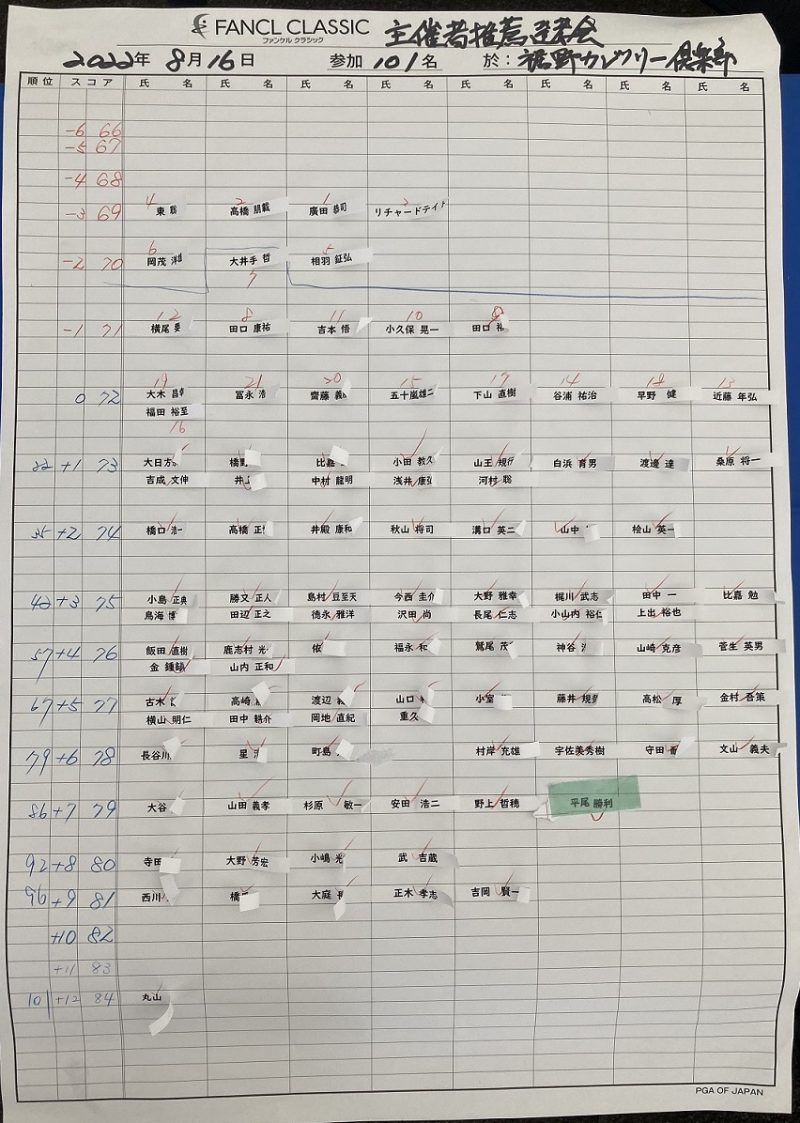 FANCL CLASSIC 主催者推薦選考会
ファンケル クラシック
2022年 8月16日 参加 101名 於：裾野カンツリー倶楽部
順位 スコア 氏 名 氏 名 氏 名 氏 名 氏 名 氏 名 氏 名 氏 名
-6 66
-5 67
-4 68
4 2 1 3
-3 69 東 聡 高橋 朋載 廣田 恭司 リチャードテイト
6 5
-2 70 岡茂 洋雄 大井手 哲 相羽 鉦弘
7
12 8 11 10 9
-1 71 横尾 要 田口 康祐 吉本 悟 小久保 晃一 田口
19 21 20 15 17 14 18 13
0 72 大木 冨永 浩 齋藤 義 五十嵐雄二 下山 直樹 谷浦 祐治 早野 健 近藤 年弘
福田 裕至
16
22 +1 73 大日方 橋野 比嘉 小田 教久 山王 規行 白浜 育男 渡邊 達 桑原 将一
吉成 文伸 井上 中村 龍明 浅井 康弘 河村 聡
35 +2 74 橋口 浩一 高橋 正 井殿 康和 秋山 将司 溝口 英二 山中 桧山 英一
42 +3 75 小島 正典 勝又 正人 島村 豆至天 今西 圭介 大野 雅幸 梶川 武志 田中 一 比嘉 勉
鳥海 博 田辺 正之 徳永 雅洋 沢田 尚 長尾 仁志 小山内 裕仁 上出 裕也
57 +4 76 飯田 直樹 鹿志村 光 俵 福永 和 鷲尾 茂 神谷 山崎 克彦 菅生 英男
金 鍾鎬 山内 正和
67 +5 77 古木 高崎 渡辺 山口 小室 藤井 規 高松 厚 金村 吾策
横山 明仁 田中 皓介 岡地 直紀 重久
79 +6 78 長谷川 星 町島 村岸 充雄 宇佐美秀樹 守田 文山 義夫
86 +7 79 大谷 山田 義孝 杉原 敏一 安田 浩二 野上 哲穂 平尾 勝利
92 +8 80 寺田 大野 芳宏 小嶋 光 武 吉蔵
96 +9 81 西川 橋 大庭 正木 孝志 吉岡 賢一
+10 82
+11 83
101 +12 84 丸山
PGA OF JAPAN